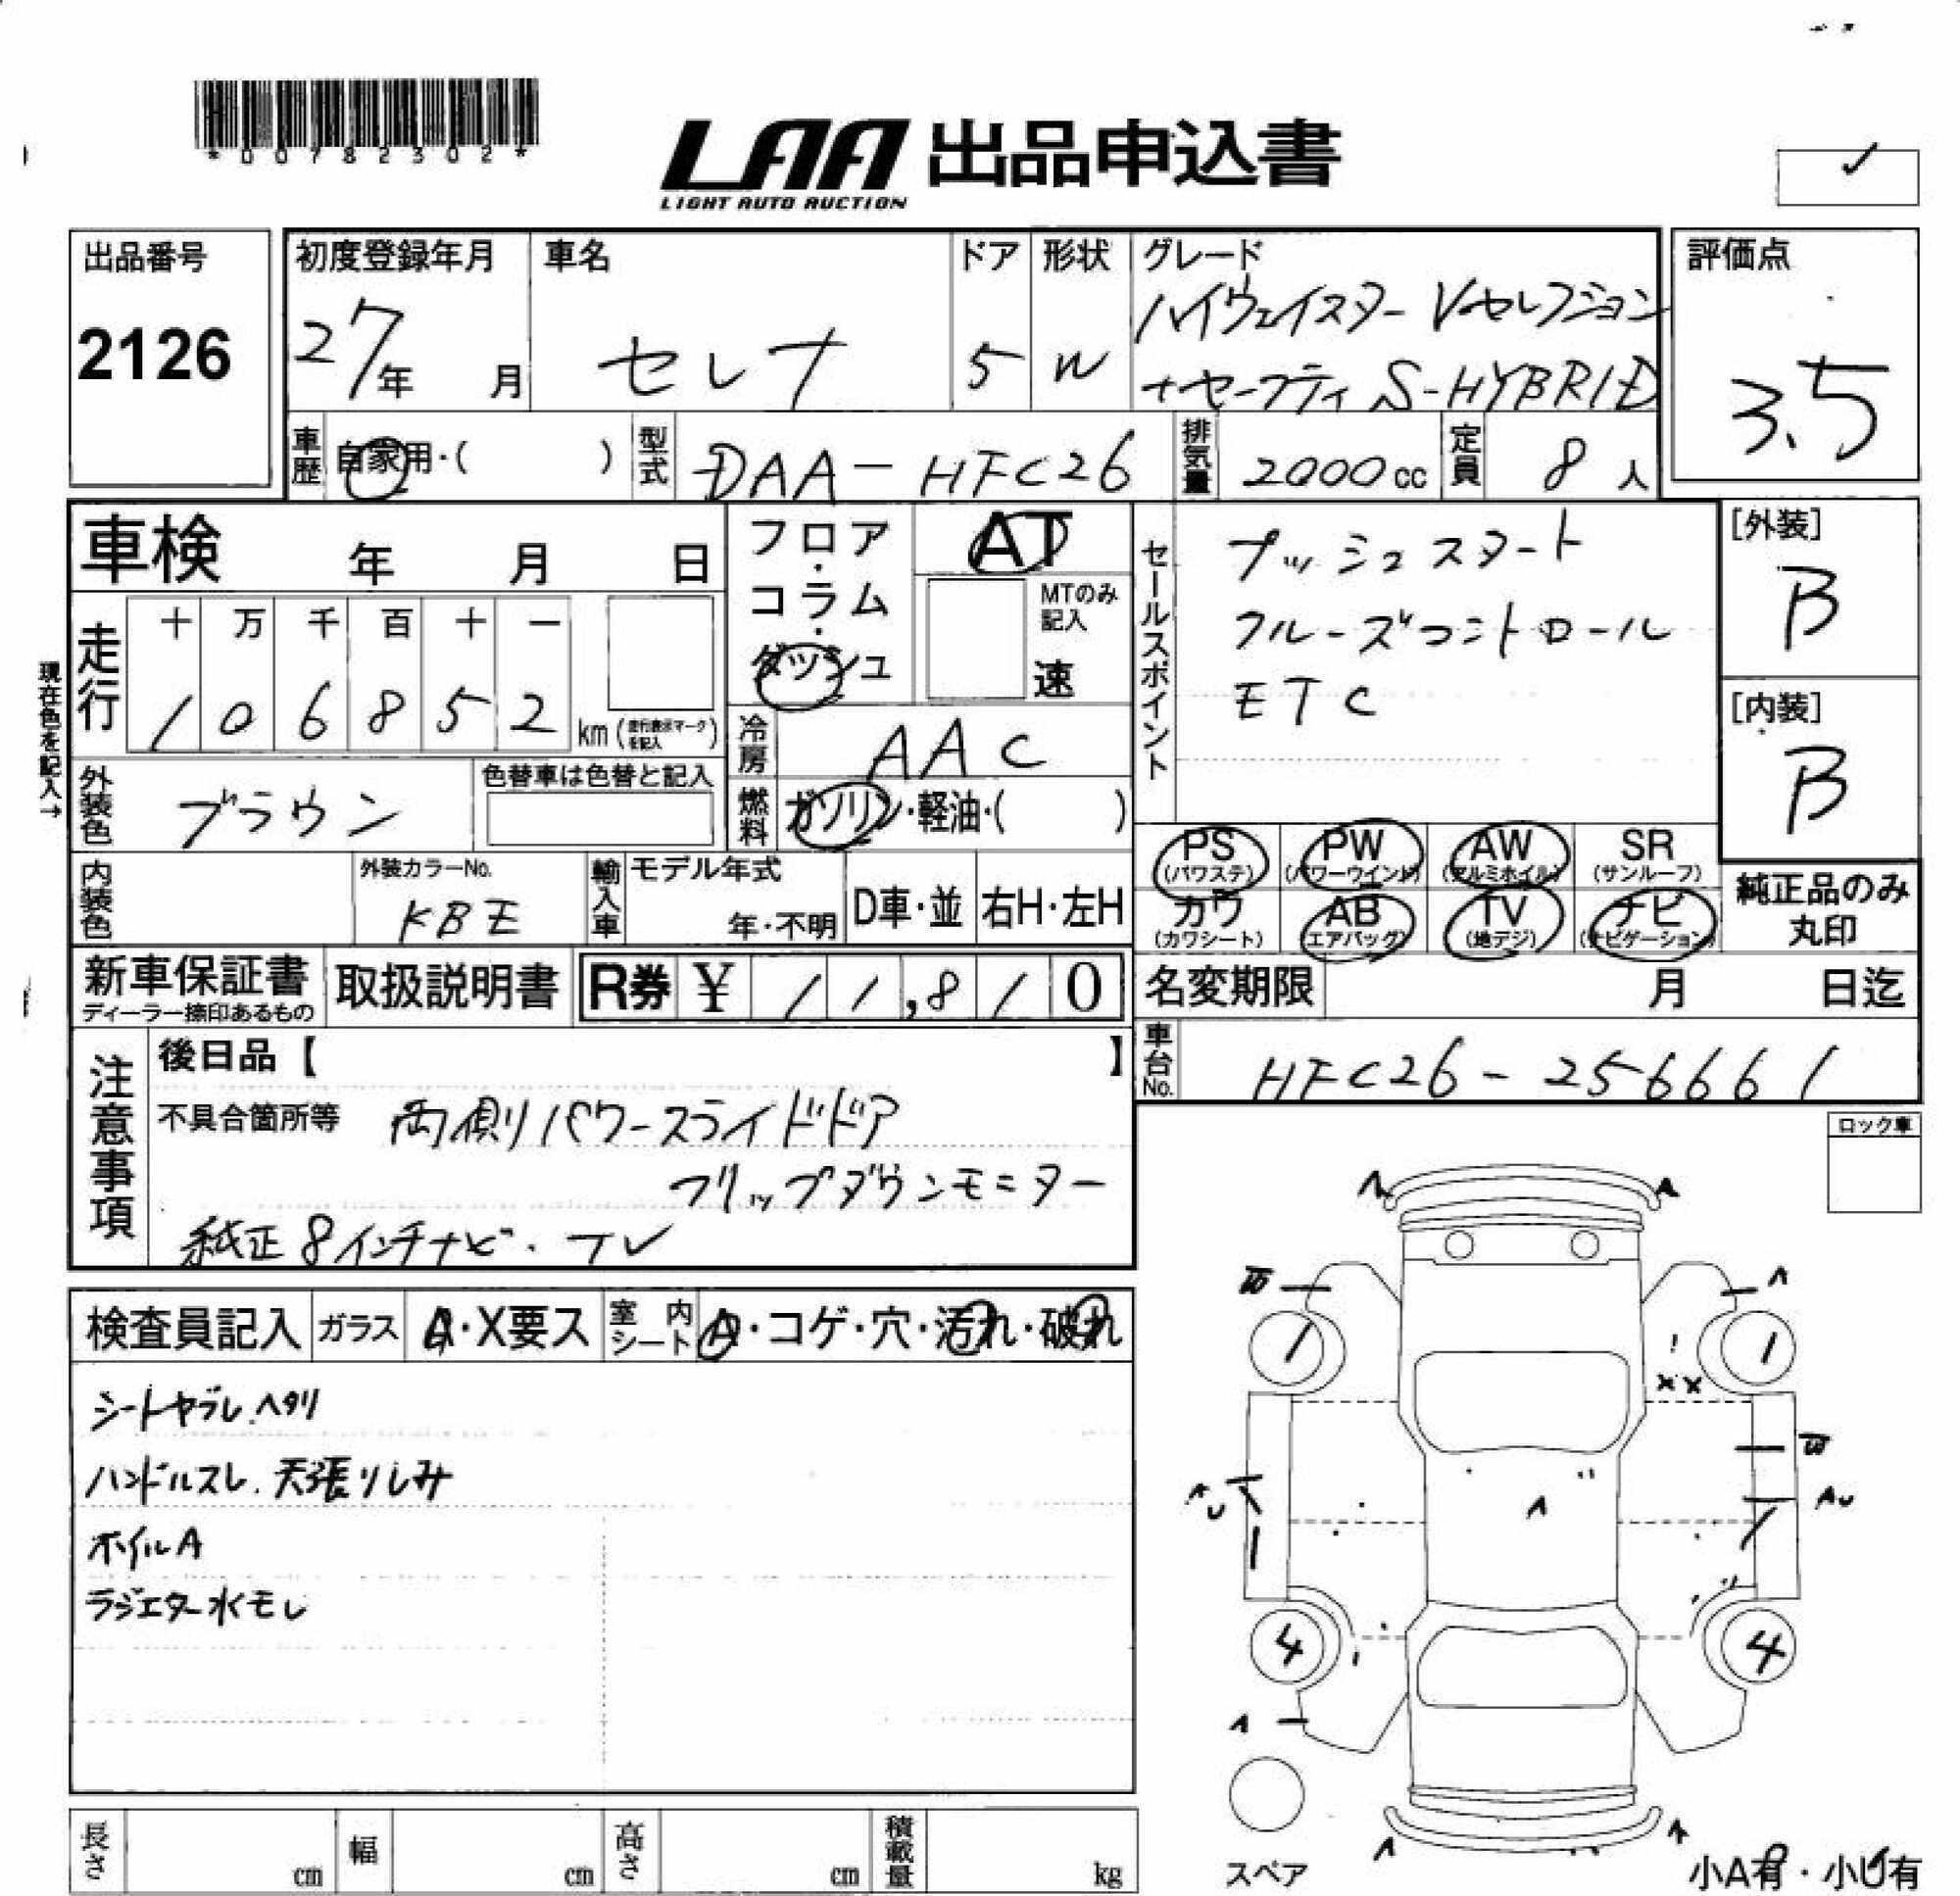 *00782302*
LAA 出品申込書
LIGHT AUTO AUCTION
出品番号
2126
初度登録年月
27年 月
車名
セレナ
ドア
5
形状
W
グレード
ハイウェイスター Vセレクション
+セーフティ S-HYBRID
評価点
3.5
車歴
自家用・( )
型式
DAA-HFC26
排気量
2000cc
定員
8人
車検 年 月 日
フロア・コラム・ダッシュ
AT
MTのみ記入
速
セールスポイント
プッシュスタート
クルーズコントロール
ETC
[外装]
B
[内装]
B
現在色を記入→
走行
十 万 千 百 十 一
1 0 6 8 5 2 km (走行表示マークを記入)
冷房
AAC
外装色
ブラウン
色替車は色替と記入
燃料
ガソリン・軽油・( )
PS (パワステ)
PW (パワーウインド)
AW (アルミホイル)
SR (サンルーフ)
カワ (カワシート)
AB (エアバッグ)
TV (地デジ)
ナビ (ナビゲーション)
純正品のみ丸印
内装色
外装カラーNo.
KBE
輸入車
モデル年式
年・不明
D車・並
右H・左H
新車保証書
ディーラー捺印あるもの
取扱説明書
R券 ¥ 11,810
名変期限 月 日迄
車台No.
HFC26-256661
注意事項
後日品【 】
不具合箇所等 両側パワースライドドア
フリップダウンモニター
純正8インチナビ・TV
ロック車
検査員記入
ガラス
A・X要ス
室内シート
A・コゲ・穴・汚れ・破れ
シートヤブレ.ヘタリ
ハンドルスレ.天張りしみ
ホイルA
ラジエター水モレ
A A
W A
1 1
XX
W
AU AU
A
4 4
A
A A
スペア
小A有・小U有
長さ cm
幅 cm
高さ cm
積載量 kg